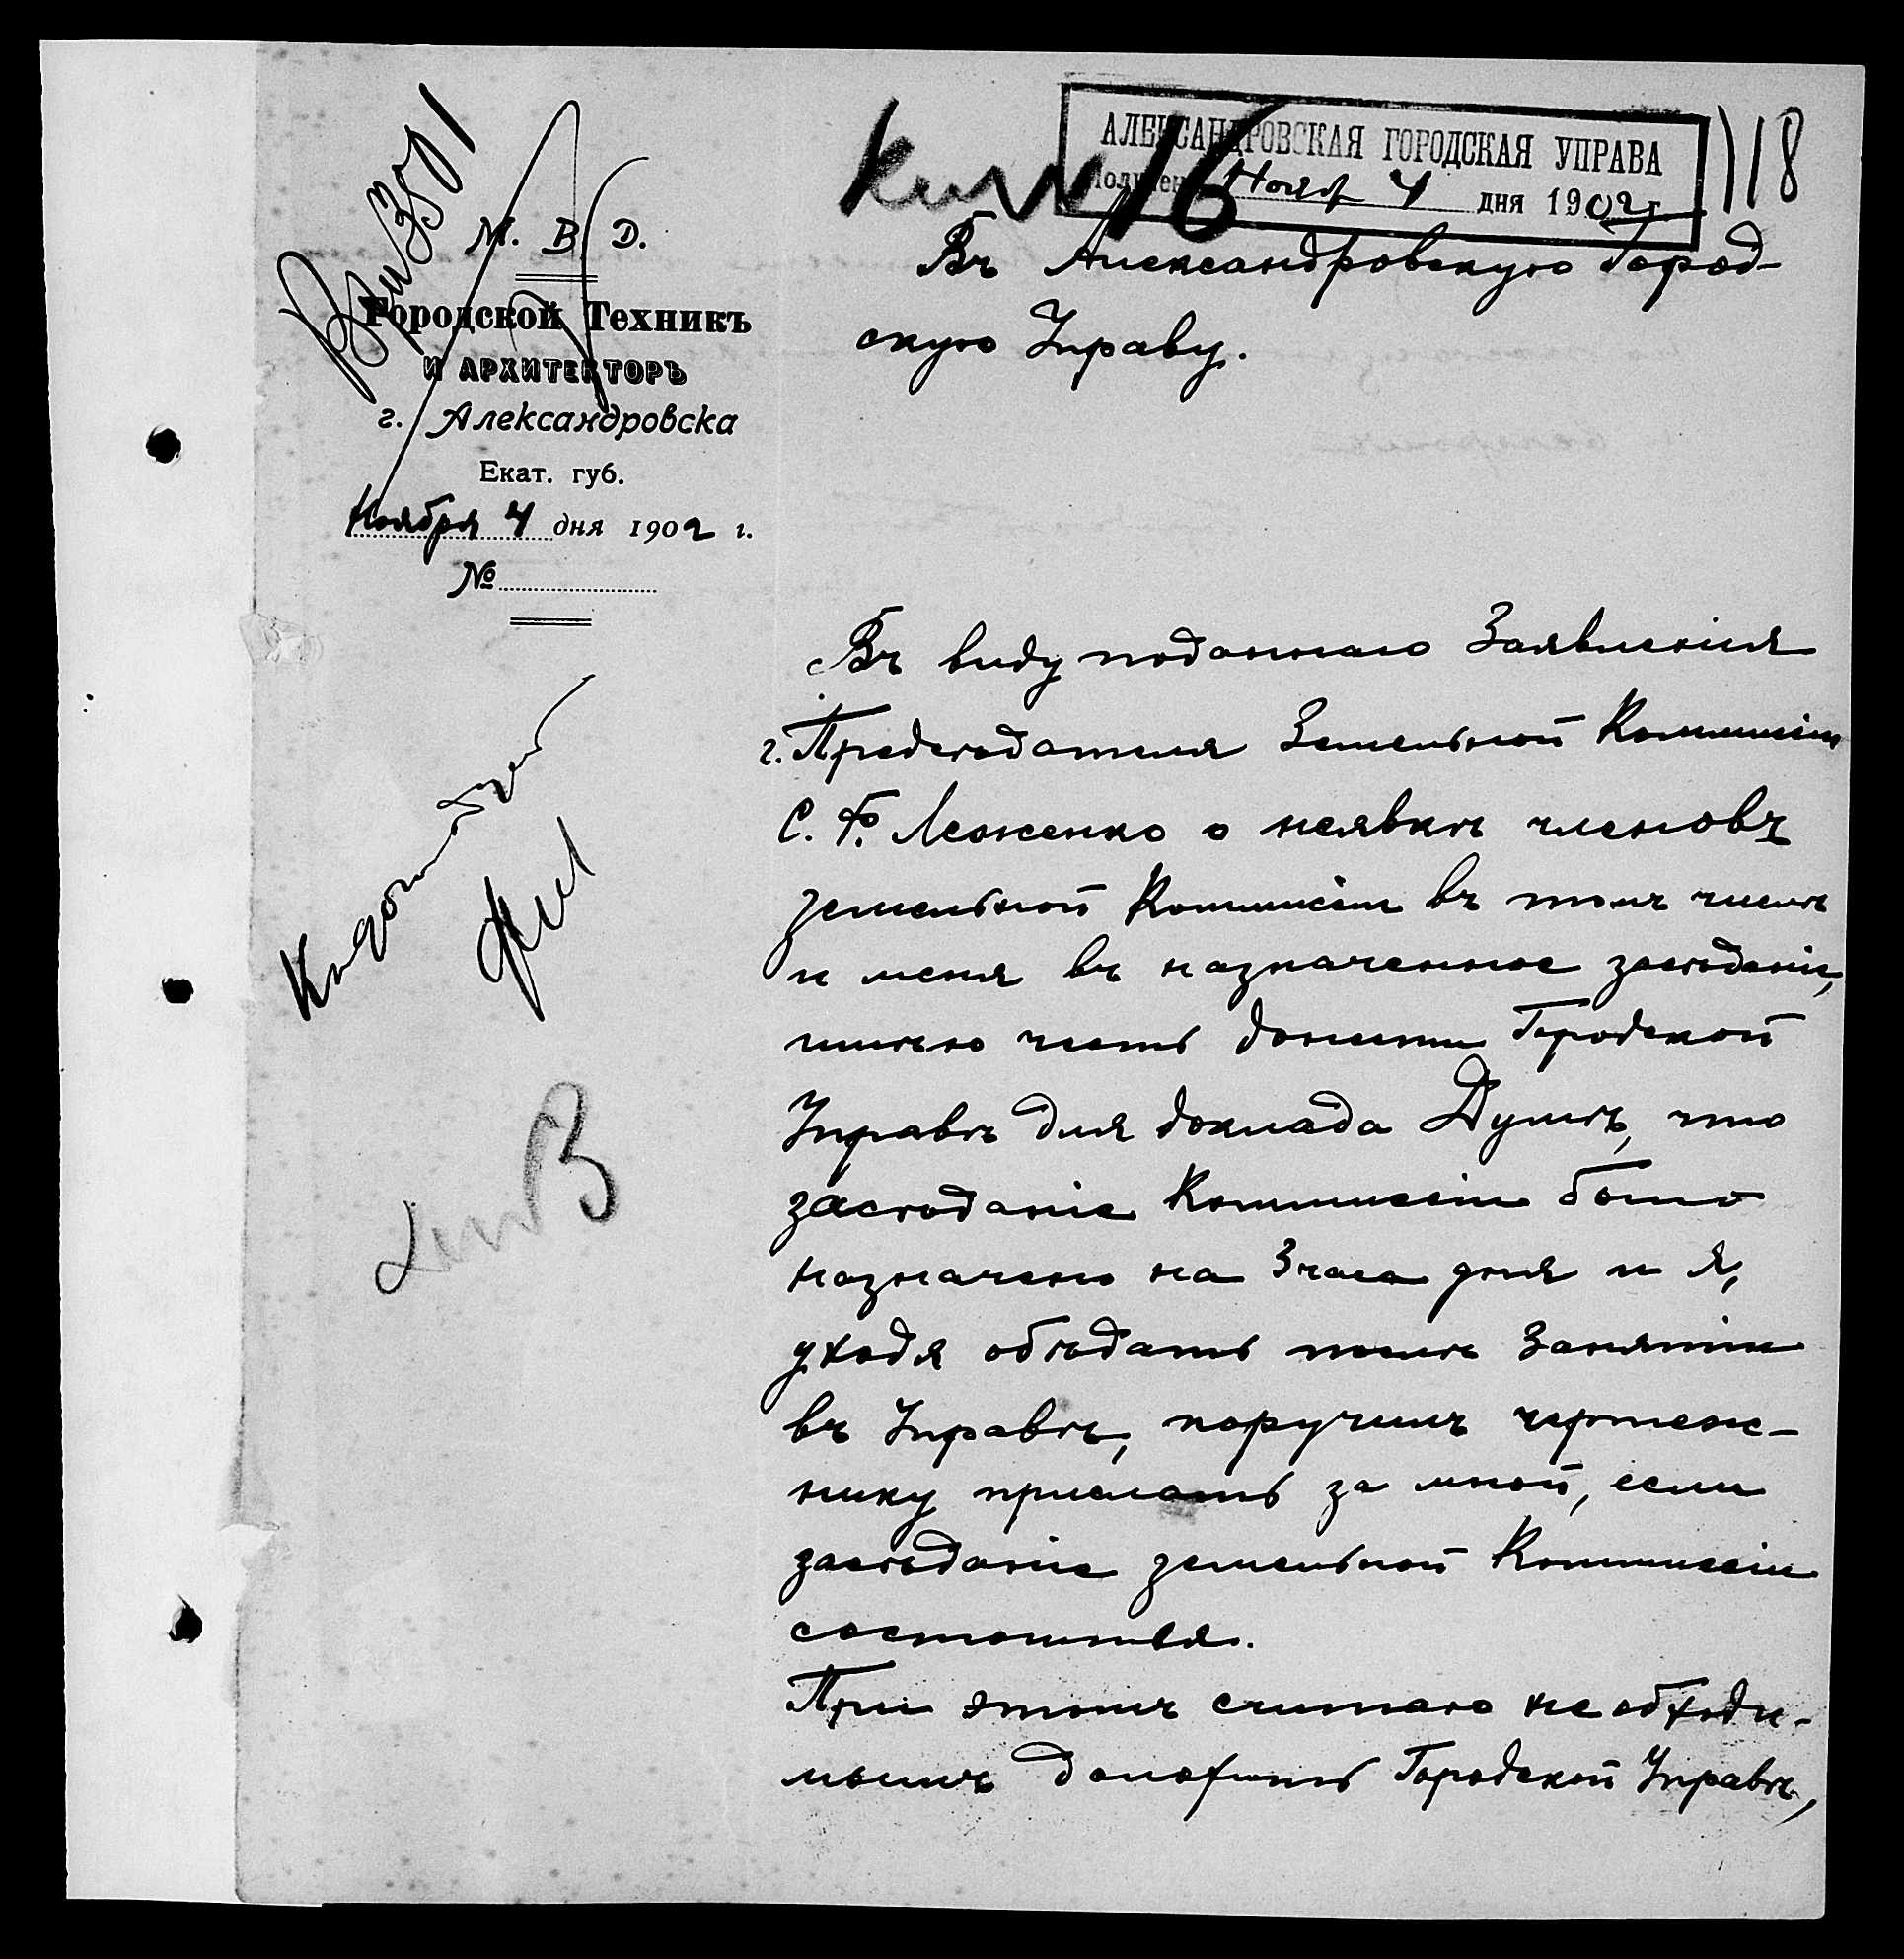 АЛЕКСАНДРОВСКАЯ ГОРОДСКАЯ УПРАВА
Получен Нояб 4 дня 1902
118
М. В. Д.
Городской Техникъ
И АРХИТЕКТОРЪ
г. Александровска
Екат. губ.
Ноября 4 дня 1902 г.
№
Въ Александровскую Город-
скую Управу.
Въ виду поданнаго Заявленія
г. Предсѣдателя Земельной Коммисіи
С. Ѳ. Леженко о неявкѣ членовъ
земельной Коммисіи въ томъ числѣ
и меня въ назначенное засѣданіе,
имѣю честь донести Городской
Управѣ для доклада Думѣ, что
засѣданіе Коммиссіи было
назначено на 3 часа дня и я,
уходя обѣдать послѣ Занятій
въ Управѣ, поручилъ чертеж-
нику прислать за мной, если
засѣданіе земельной Коммиссіи
состоится.
При этомъ считаю необходи-
мымъ доложить Городской Управѣ,